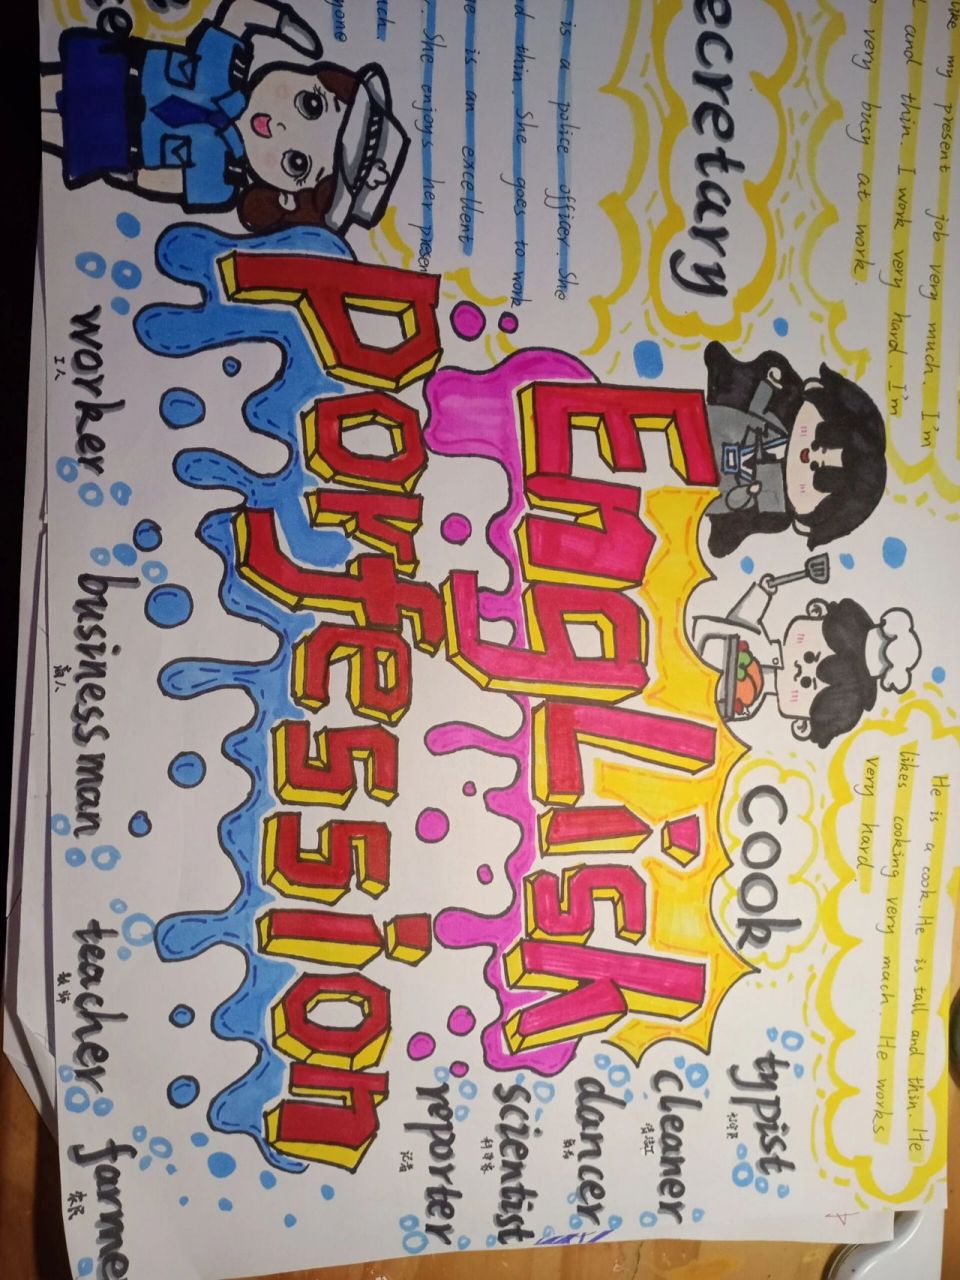 like my present job very much. I'm
and thin. I work very hard. I'm
very busy at work.
ecretary
is a police officer. She
d thin. She goes to work
e is an excellent
She enjoys her presen
yone
EngLish
porfession
cook
He is a cook. He is tall and thin. He
likes cooking very much. He works
very hard.
typist
打字员
cleaner
清洁工
dancer
舞者
scientist
科学家
reporter
记者
worker
工人
business man
商人
teacher
教师
farme
农民